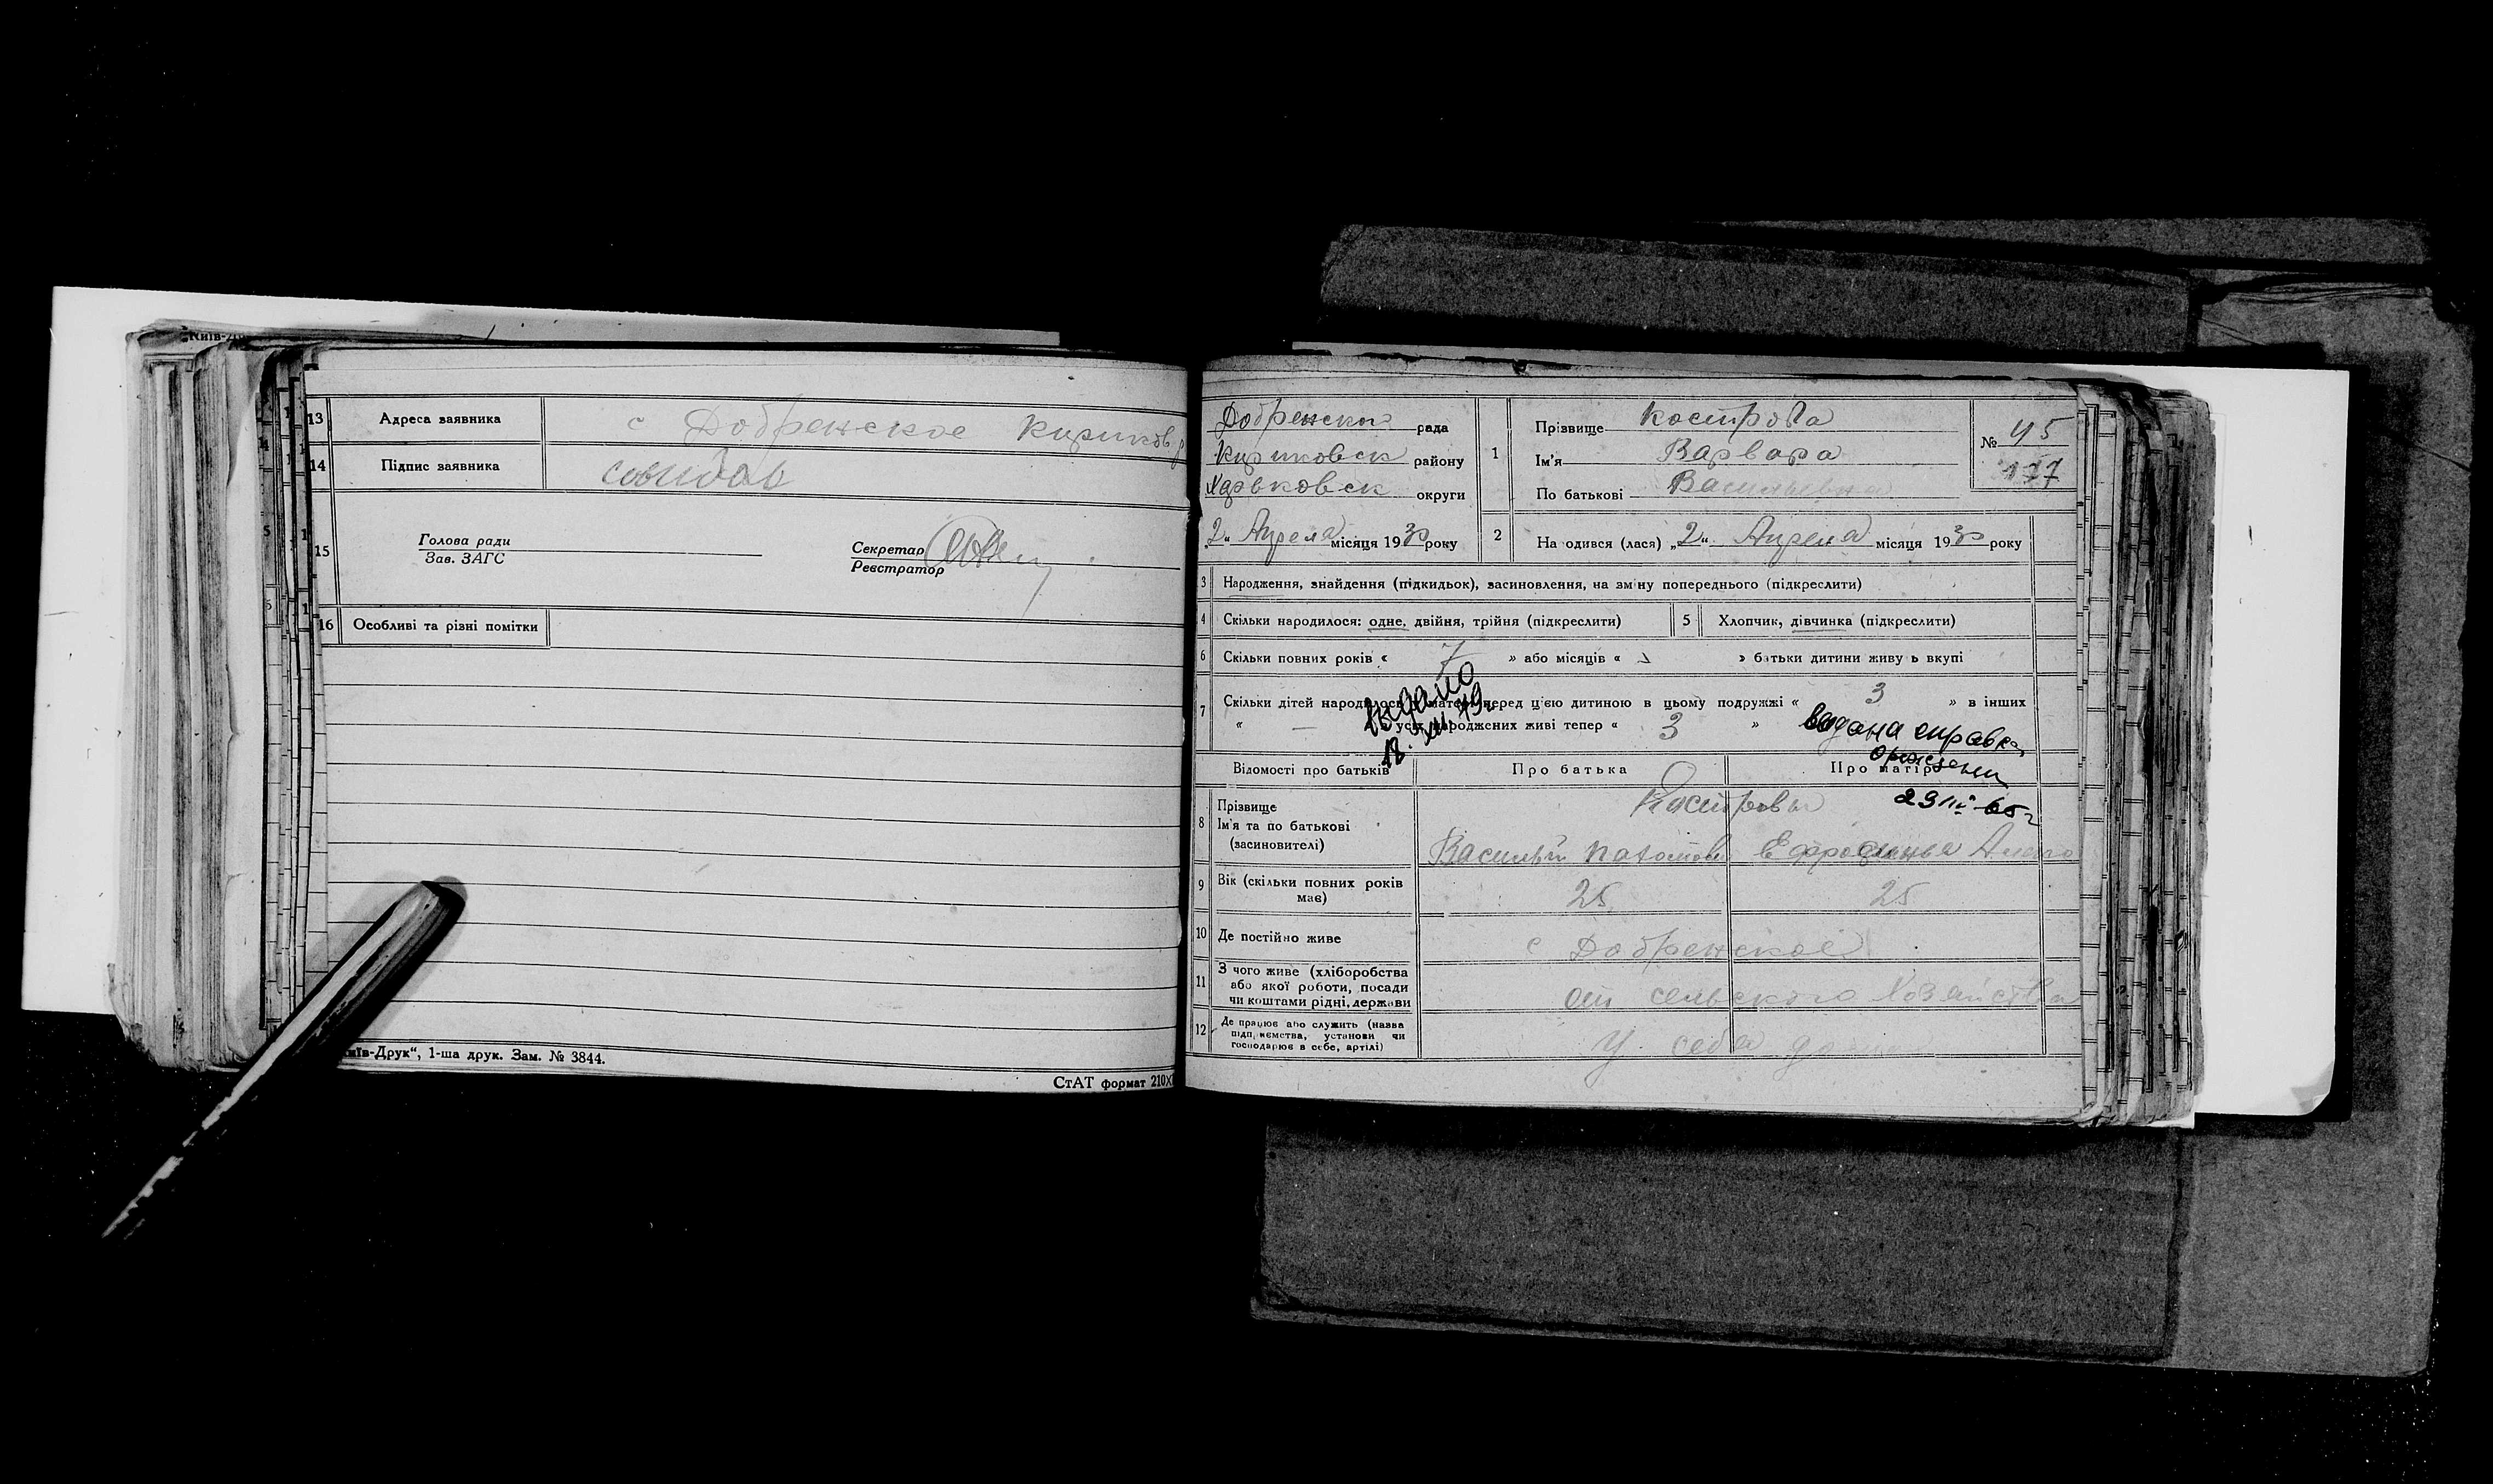 13 Адреса заявника с Добренское Кириков р
14 Підпис заявника
15 Голова ради
Зав. ЗАГС
Секретар
Реєстратор
16 Особливі та різні помітки
Київ-Друк“, 1-ша друк. Зам. № 3844.
СтАТ формат 210×
Добренская рада
Кириковск району
Харьковск округи
„2“ Апреля місяця 1930 року
1 Прізвище Кострова
Ім'я Варвара
По батькові Васильевна
№ 45
177
2 На одився (лася) „2“ Апреля місяця 1930 року
3 Народження, знайдення (підкидьок), засиновлення, на зміну попереднього (підкреслити)
4 Скільки народилося: одне, двійня, трійня (підкреслити) 5 Хлопчик, дівчинка (підкреслити)
6 Скільки повних років « 7 » або місяців « » батьки дитини живу ь вкупі
7 Скільки дітей народилось матері перед цією дитиною в цьому подружжі « 3 » в інших
« — усіх народжених живі тепер « 3 »
Видано
18. XII 49г
Видана справка
о рождении
29 65г
Відомості про батьків Про батька Про матір
8 Прізвище Костровы
Ім'я та по батькові
(засиновителі) Василий Ефросинья
9 Вік (скільки повних років має) 25 25
10 Де постійно живе с Добренское
11 З чого живе (хліборобства
або якої роботи, посади
чи коштами рідні, держави от сельского хозяйства
12 Де працює або служить (назва
підприємства, установи чи
господарює в себе, артілі) У себя дома